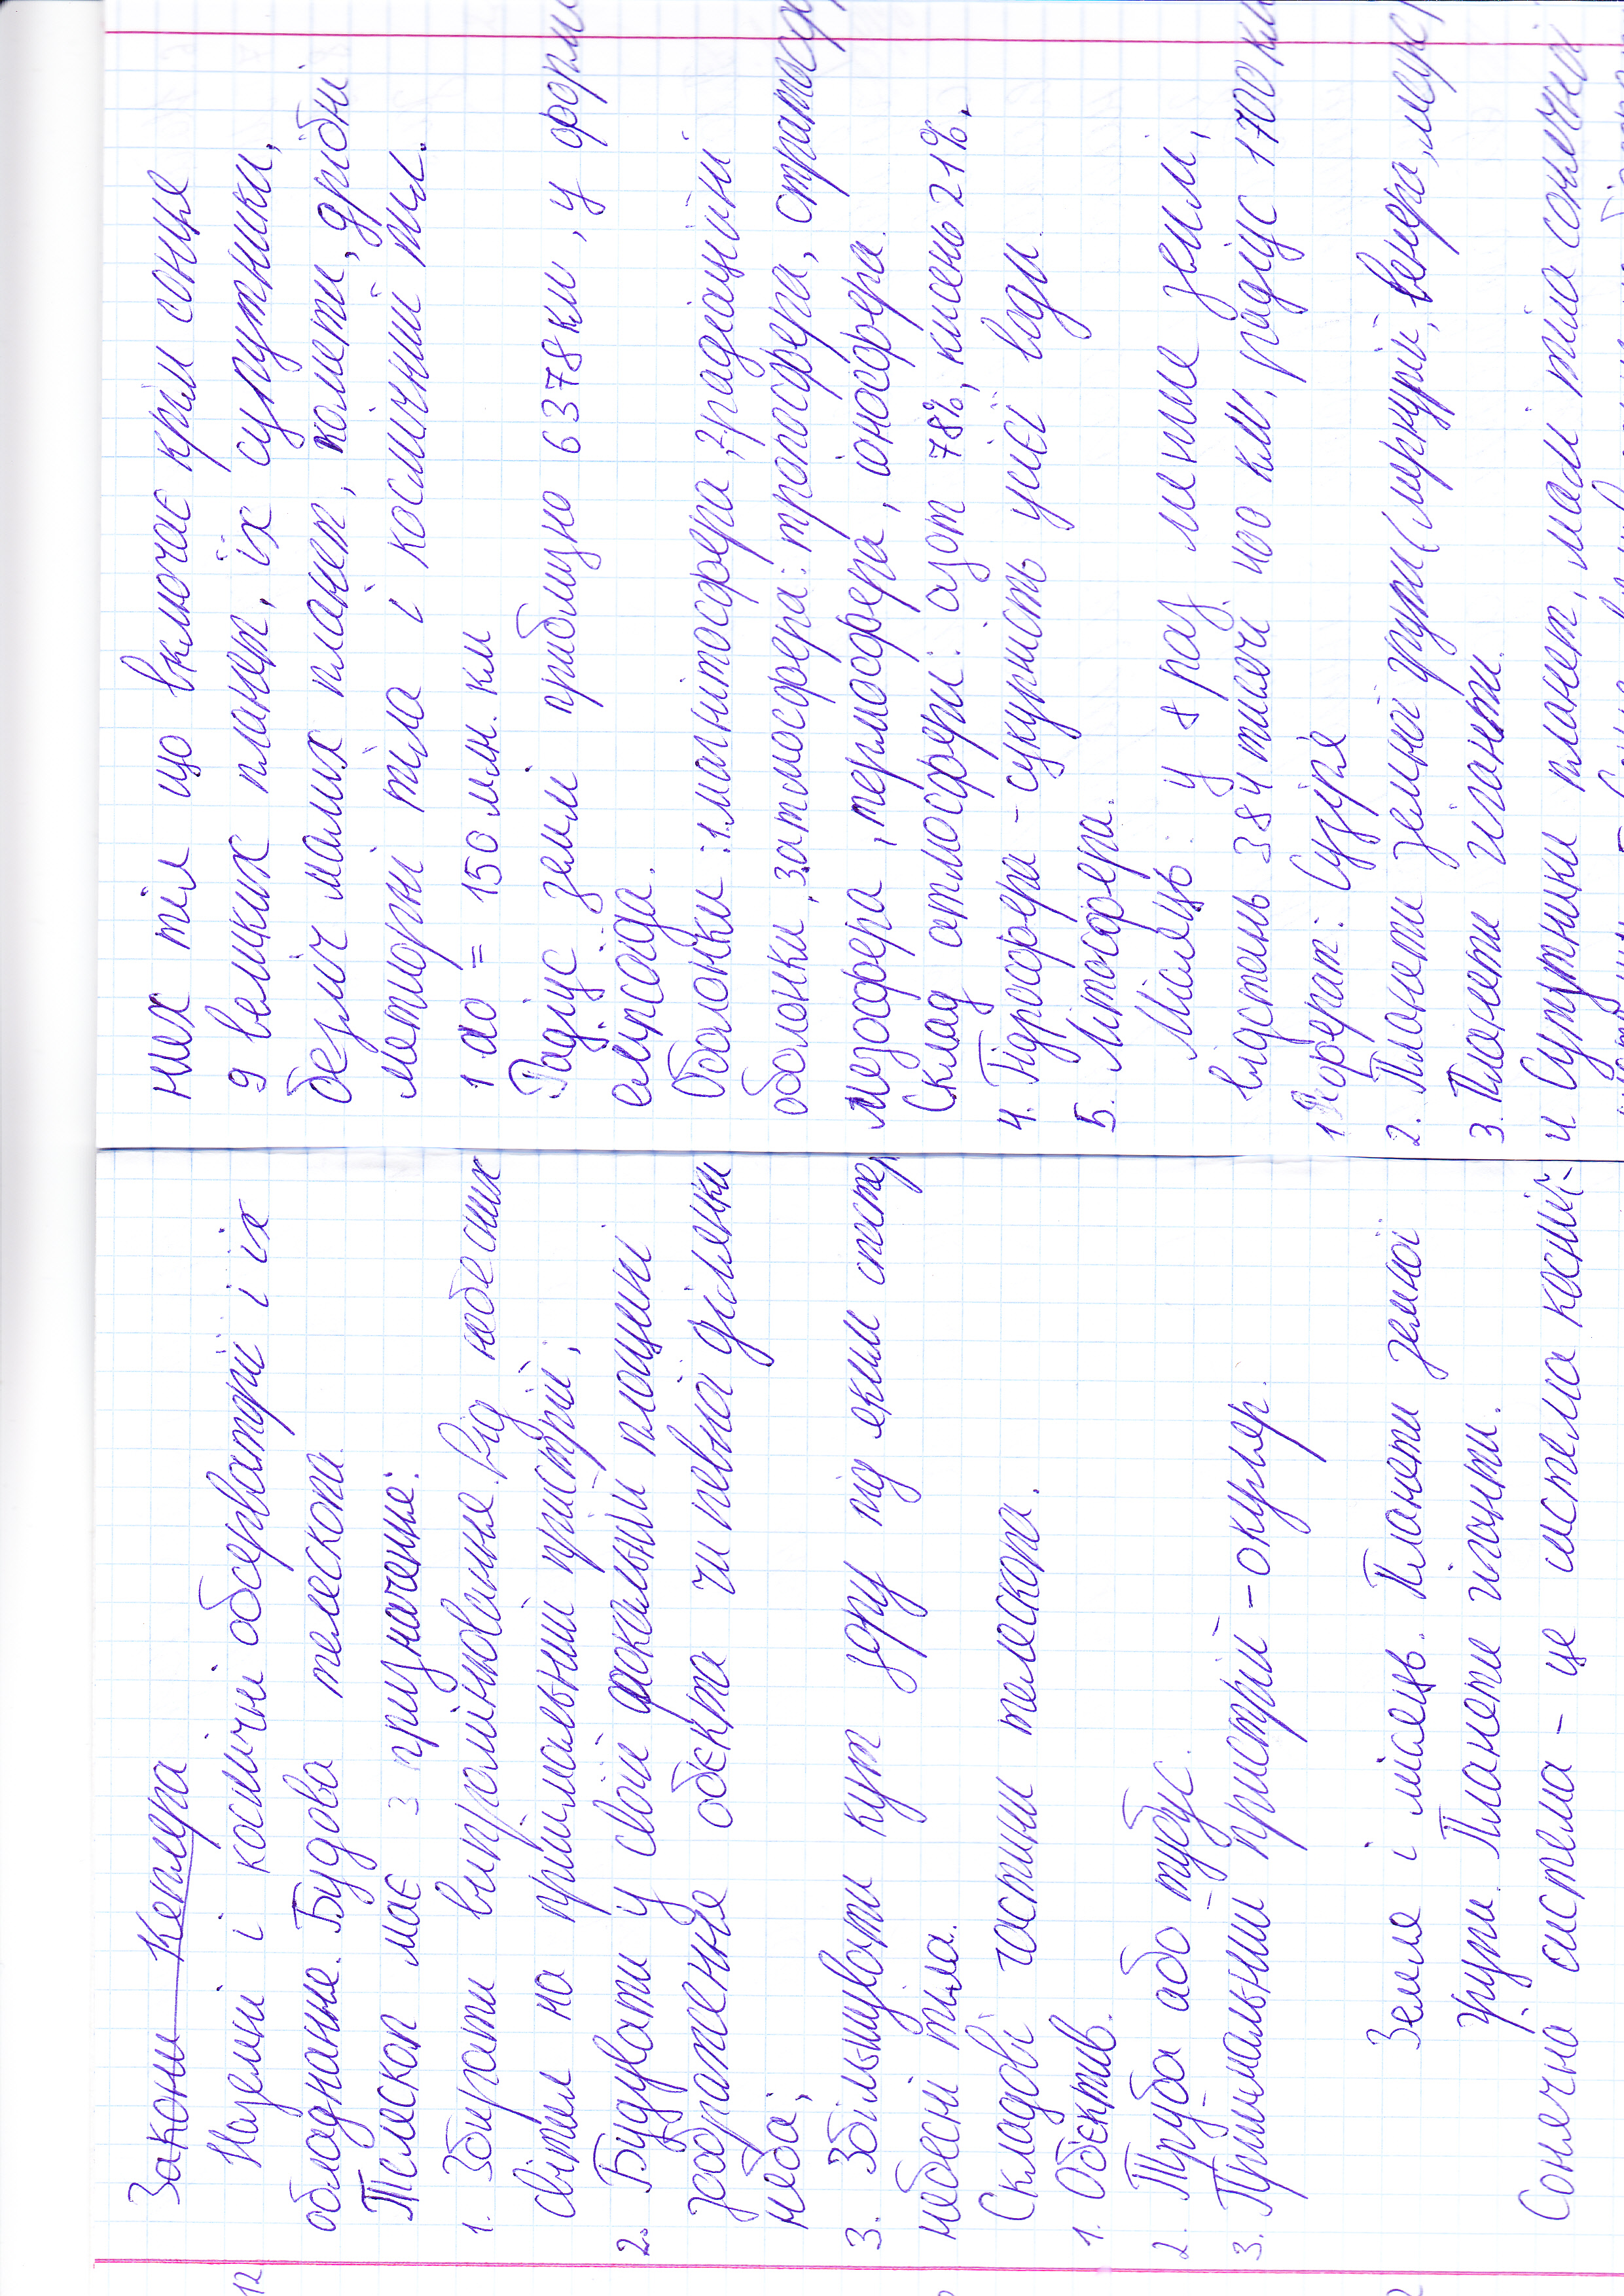 Закони Кеплера
Наземні і космічні обсерваторії і їх
обладнання. Будова телескопа.
Телескоп має 3 призначення:
1. Збирати випромінювання від небесних
світил на приймальний пристрій;
2. Будувати у своїй фокальній площині
зображення обєкта чи певної ділянки
неба;
3. Збільшувати кут зору під яким спостер
небесні тіла.
Складові частини телескопа.
1. Обєктив.
2. Труба або тубус.
3. Приймальний пристрій – окуляр.
Земля і місяць. Планети земної
групи. Планети гіганти.
Сонячна система – це система косміч-
них тіл що включає крім сонця
9 великих планет, їх супутники,
безліч малих планет, комети, дрібні
метиорні тіла і космічний пил.
1 ао = 150 млн. км
Радіус землі приблизно 6378 км, у форм
еліпсоїда.
Оболонки: 1. магнітосфера, 2 радіаційні
оболонки, 3 атмосфера: тропосфера, стратосф
мезосфера, термосфера, іоносфера.
Склад атмосфери: азот 78%, кисень 21%.
4. Гідросфера – сукупність усієї води.
5. Літосфера.
Місяць у 8 раз менше землі,
відстань 384 тисячі 400 км, радіус 1700 км
1 Реферат: Сузіря
2. Планети земної групи (меркурій, венера, марс)
3. Планети гіганти.
4 Супутники планет, малі тіла сонячної